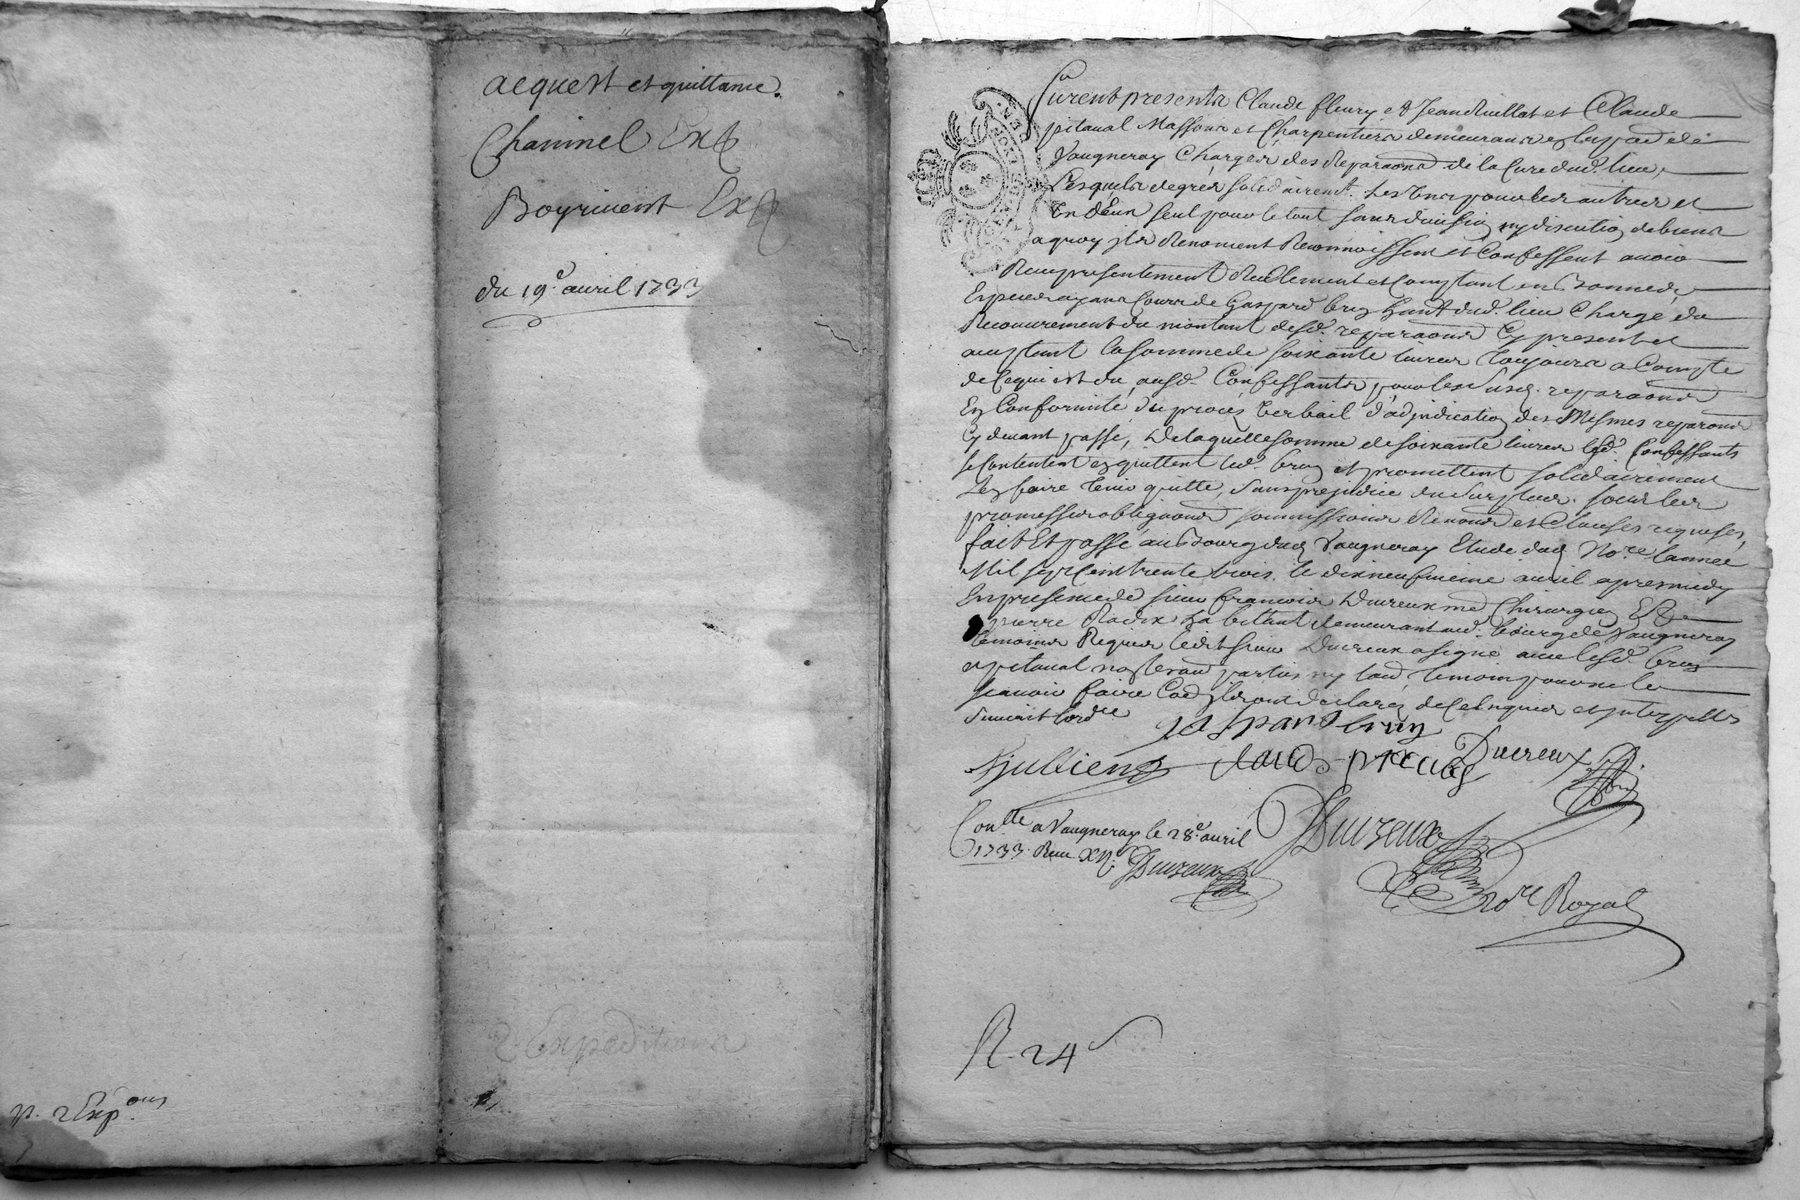 acquest et quittance.
Chaninel Exp
Boyriuent Exp
du 19e. avril 1733
2 Expeditions
p. 2 Exp.ons
furent presents Claude fleury et Jean Ruillat et Claude
pitaval Massons et Charpentiers demeurants en la parr de
Vaugneray Charges des Reparaons de la Cure dud. lieu,
Lesquels de gres solidairemt. les Uns pour les autres et
Un d'Eux seul pour le tout sans division ny discution de biens
a quoy ils Renoncent Reconnoissent et Confessent avoir
Receu presentement Reellement et Comptant en Bonnes
Especes ayans Cours de Gaspard brun hant dud. lieu Chargé du
Recouvrement du montant desd. reparaons Cy present et
aceptant la somme de soixante livres Toujours a Compte
de Ce qui est du ausd. Confessants pour les susd. reparaons
En Conformité du procés Verbail d'adjudication des Mesmes reparaons
Cy devant passé, De laquelle somme de soixante livres lesd. Confessants
se Contentent en quittent led. brun et promettent solidairement
L'en faire tenir quitte, sans prejudice du surplus. sous les
promesses obligaons soumissions Renons et Clauses requises,
fait Et passé au Bourg dud. Vaugneray Etude dud. No.re l'année
Mil sept Cent trente trois. le dixneufvieme avril apres midy
En presence de sieur francois Ducreux me Chirurgien Et de
pierre Radix habitant demeurant aud. bourg de Vaugneray
temoins Requis ledit sieur Ducreux a signé avec lesd. brun
et pitaval non les autres parties ny laud. temoin pour ne le
scavoir faire Co'ils ont declaré de Ce Enquis et interpellés
suivant lord.ce
gaspard brun
Jullien claude pitaval Ducreux
Con.lle a Vaugneray le 28e. avril
1733. Receu XII. Ducreux
Ducreux
No.re Royal
R. 24 s